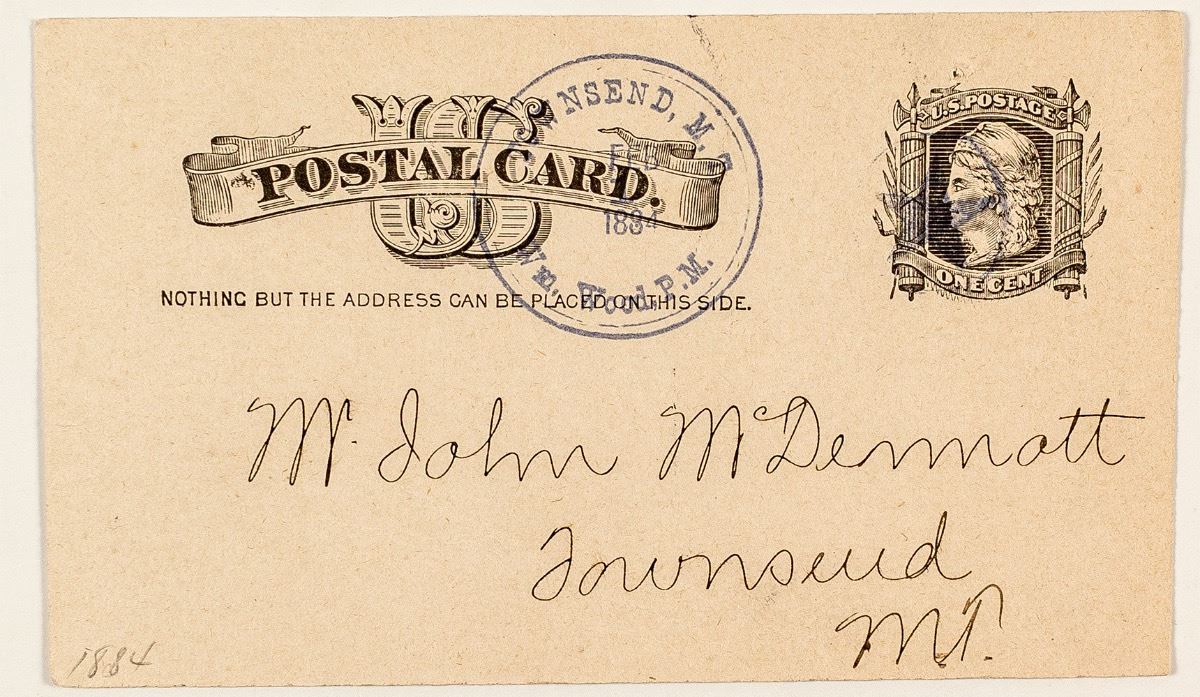 US
POSTAL CARD.
NOTHING BUT THE ADDRESS CAN BE PLACED ON THIS SIDE.
WNSEND, M.T.
FEB
1884
Wm. Wood, P.M.
U.S. POSTAGE
ONE CENT
Mr. John McDermott
Townsend
M.T.
1884